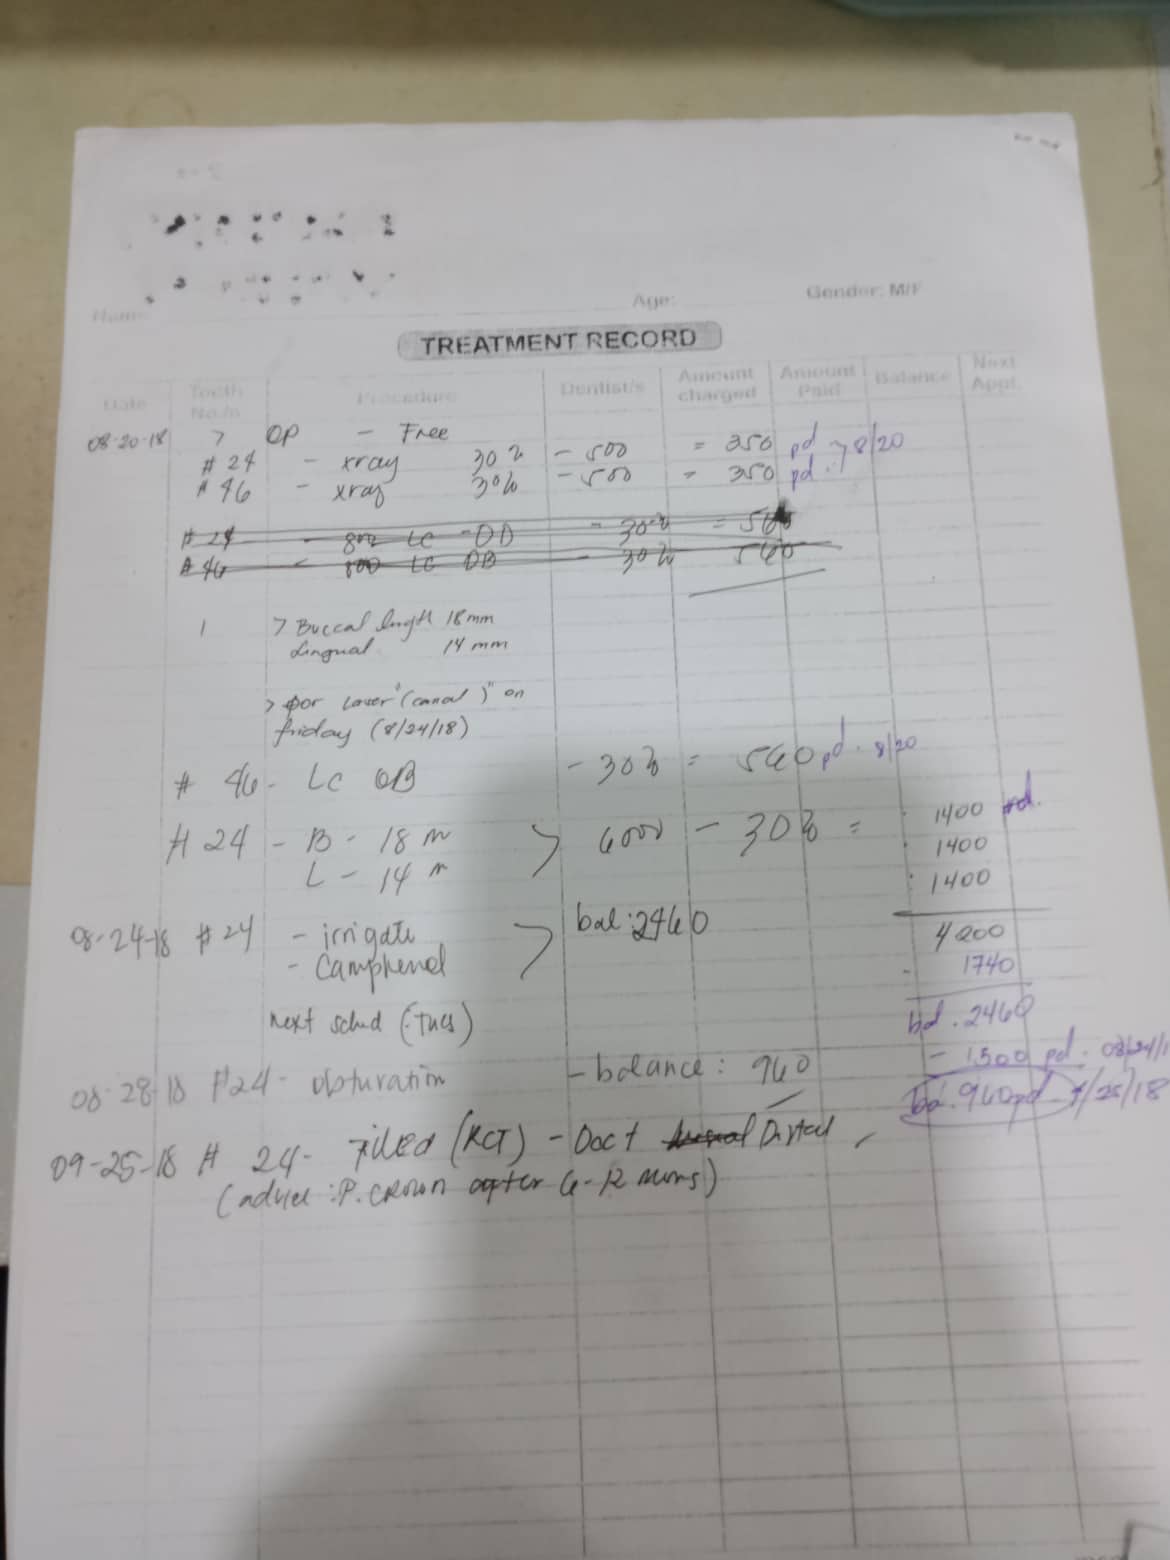 Name: Age: Gender: M/F
TREATMENT RECORD
Date Tooth No./s Procedure Dentist/s Amount charged Amount Paid Balance Next Appt.
08-20-18 > OP - Free
# 24 - xray 30% - 500 = 350 pd 8/20
# 46 - xray 30% - 500 = 350 pd
# 24 - 800 LC - OD - 30% = 560
# 46 - 800 LC OB - 30% 560
> Buccal length 18mm
Lingual 14 mm
> for Laser "(canal)" on
friday (8/24/18)
# 46 - LC OB - 30% = 560 pd. 8/20
# 24 - B - 18 m > 6000 - 30% = 1400 pd.
L - 14 m 1400
1400
08-24-18 # 24 - irrigate > bal: 2460 4200
- Camphenol 1740
next sched (Tues) bal. 2460
- 1500 pd. 08/24/1
08-28-18 #24 - obturation - balance: 960 bal. 960 pd 9/25/18
09-25-18 # 24 - Filled (RCT) - Doct Distal
(advice: P. crown after 6-12 mons)